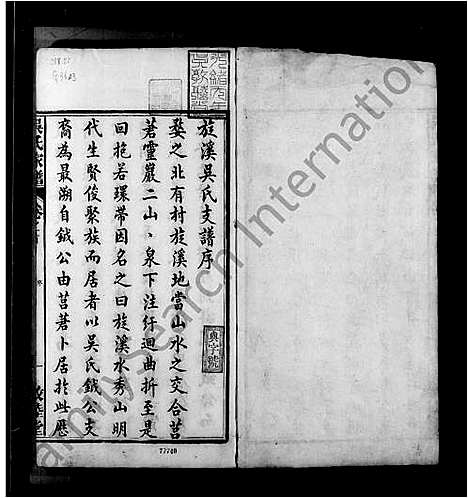 旋溪吳氏支譜序
婺之北有村旋溪地當山水之交合莒
莙靈巖二山丶泉下注紆迴曲折至是
回抱若環帶因名之曰旋溪水秀山明
代生賢俊聚族而居者以吳氏鉞公支
裔為最溯自鉞公由莒莙卜居於此歷
吳氏家譜
卷首
序
一
敘倫堂
光緒
吳敦
字號
77708
FamilySearch International